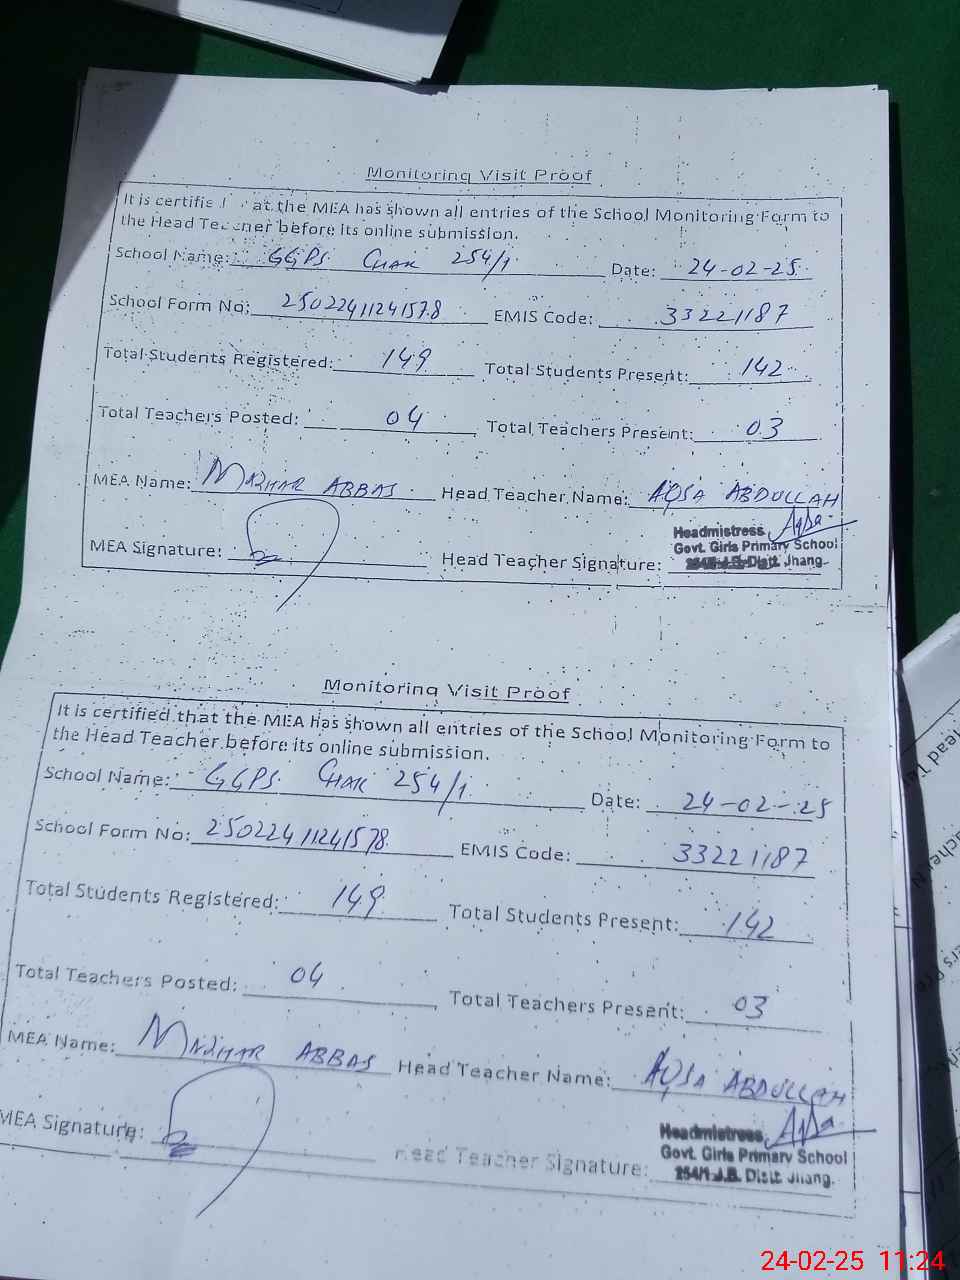 Monitoring Visit Proof
It is certified that the MEA has shown all entries of the School Monitoring Form to
the Head Teacher before its online submission.
School Name: GGPS Chak 254/1 Date: 24-02-25
School Form No: 25022411241578 EMIS Code: 33221187
Total Students Registered: 149 Total Students Present: 142
Total Teachers Posted: 04 Total Teachers Present: 03
MEA Name: MAZHAR ABBAS Head Teacher Name: AQSA ABDULLAH
Headmistress Aqsa
Govt. Girls Primary School
MEA Signature: Head Teacher Signature: J.B. Distt. Jhang.
Monitoring Visit Proof
It is certified that the MEA has shown all entries of the School Monitoring Form to
the Head Teacher before its online submission.
School Name: GGPS Chak 254/1 Date: 24-02-25
School Form No: 25022411241578 EMIS Code: 33221187
Total Students Registered: 149 Total Students Present: 142
Total Teachers Posted: 04 Total Teachers Present: 03
MEA Name: MAZHAR ABBAS Head Teacher Name: AQSA ABDULLAH
Headmistress Aqsa
Govt. Girls Primary School
MEA Signature: Head Teacher Signature: 254/1 J.B. Distt. Jhang.
24-02-25 11:24